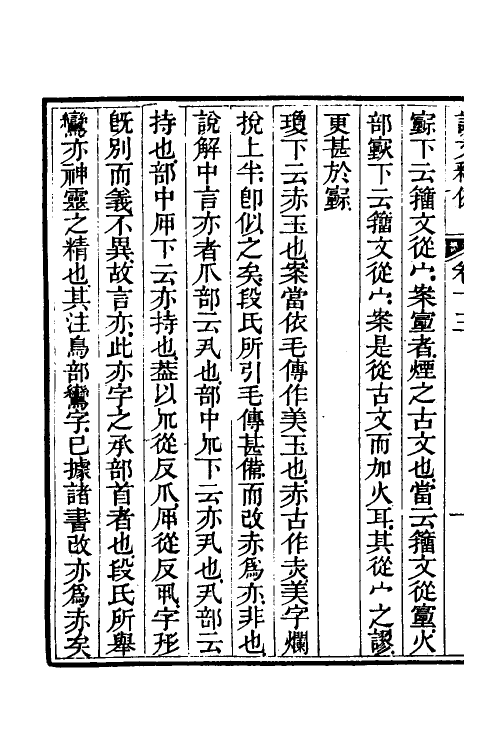 說文釋例 卷十三
下云籀文從宀案者煙之古文也當云籀文從火
部下云籀文從宀案是從古文而加火耳其從宀之謬
更甚於
瓊下云赤玉也案當依毛傳作美玉也赤古作灻美字爛
挩上半卽似之矣段氏所引毛傳甚備而改赤爲亦非也
說解中言亦者爪部云丮也部中下云亦丮也丮部云
持也部中下云亦持也葢以從反爪從反丮字形
旣別而義不異故言亦此亦字之承部首者也段氏所舉
鸞亦神靈之精也其注鳥部鸞字已據諸書改亦爲赤矣